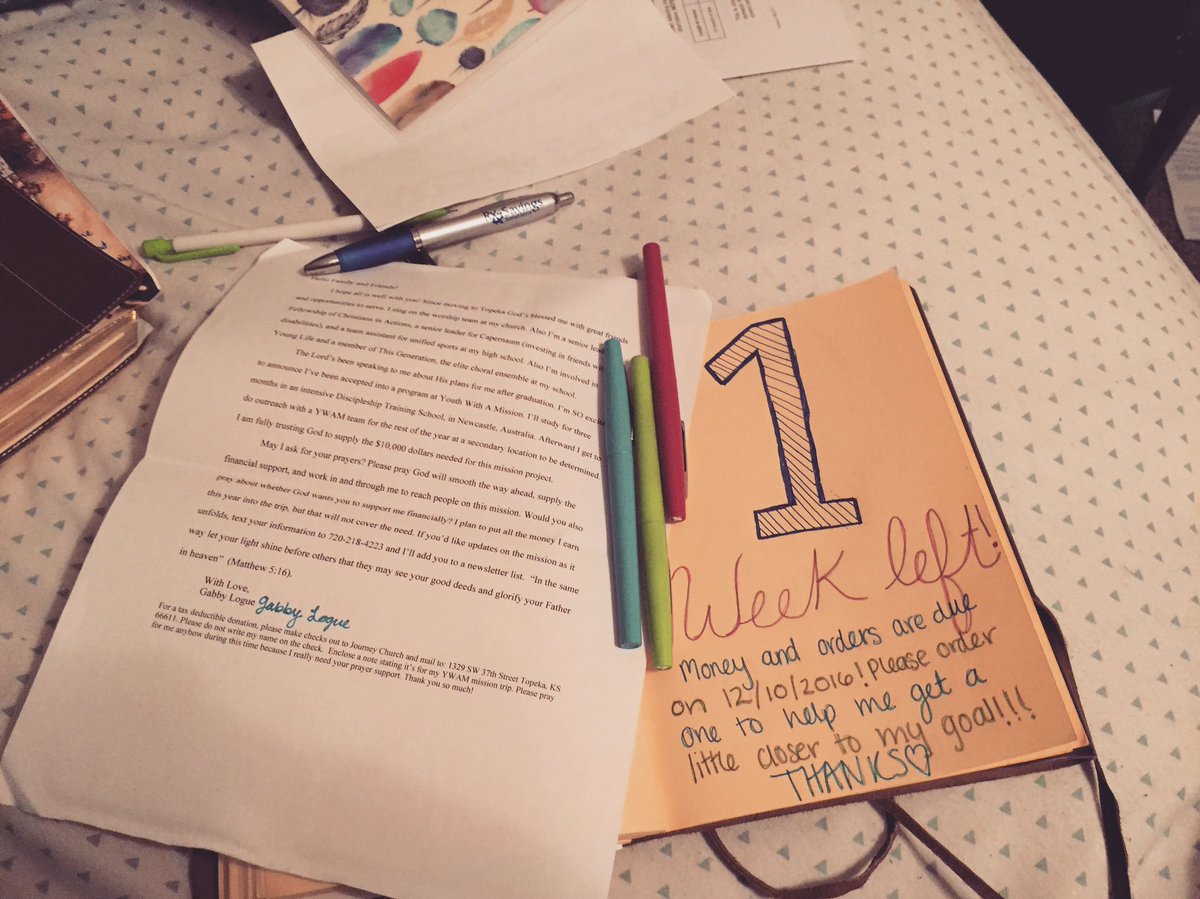 Rx Savings
Solutions
Hello Family and Friends!
I hope all is well with you! Since moving to Topeka God's blessed me with great friends
and opportunities to serve. I sing on the worship team at my church. Also I'm a senior lead
Fellowship of Christians in Actions, a senior leader for Capernaum (investing in friends wi
disabilities), and a team assistant for unified sports at my high school. Also I'm involved in
Young Life and a member of This Generation, the elite choral ensemble at my school.
The Lord's been speaking to me about His plans for me after graduation. I'm SO excite
to announce I've been accepted into a program at Youth With A Mission. I'll study for three
months in an intensive Discipleship Training School, in Newcastle, Australia. Afterward I get to
do outreach with a YWAM team for the rest of the year at a secondary location to be determined
I am fully trusting God to supply the $10,000 dollars needed for this mission project.
May I ask for your prayers? Please pray God will smooth the way ahead, supply the
financial support, and work in and through me to reach people on this mission. Would you also
pray about whether God wants you to support me financially? I plan to put all the money I earn
this year into the trip, but that will not cover the need. If you'd like updates on the mission as it
unfolds, text your information to 720-218-4223 and I'll add you to a newsletter list. "In the same
way let your light shine before others that they may see your good deeds and glorify your Father
in heaven" (Matthew 5:16).
With Love,
Gabby Logue Gabby Logue
For a tax deductible donation, please make checks out to Journey Church and mail to: 1329 SW 37th Street Topeka, KS
66611. Please do not write my name on the check. Enclose a note stating it's for my YWAM mission trip. Please pray
for me anyhow during this time because I really need your prayer support. Thank you so much!
1
Week left!
Money and orders are due
on 12/10/2016! Please order
one to help me get a
little closer to my goal!!!
THANKS♡